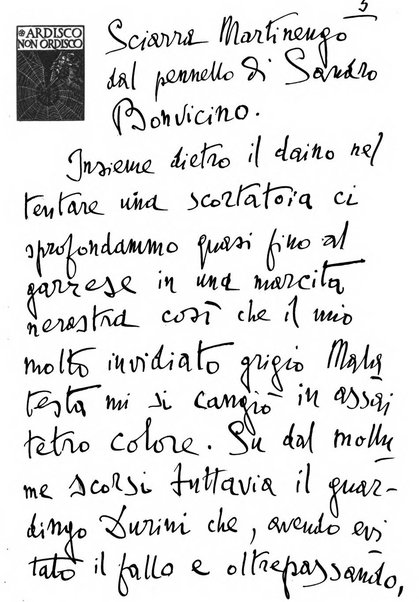 5
ARDISCO
NON ORDISCO
Sciarra Martinengo
dal pennello di Sandro
Bonvicino.
Insieme dietro il daino nel
tentare una scortatoia ci
sprofondammo quasi fino al
garrese in una marcita
nerastra così che il mio
molto invidiato grigio Mala
testa mi si cangiò in assai
tetro colore. Su dal mollu
me scorsi tuttavia il guar-
dingo Durini che, avendo evi
tato il fallo e oltrepassando,